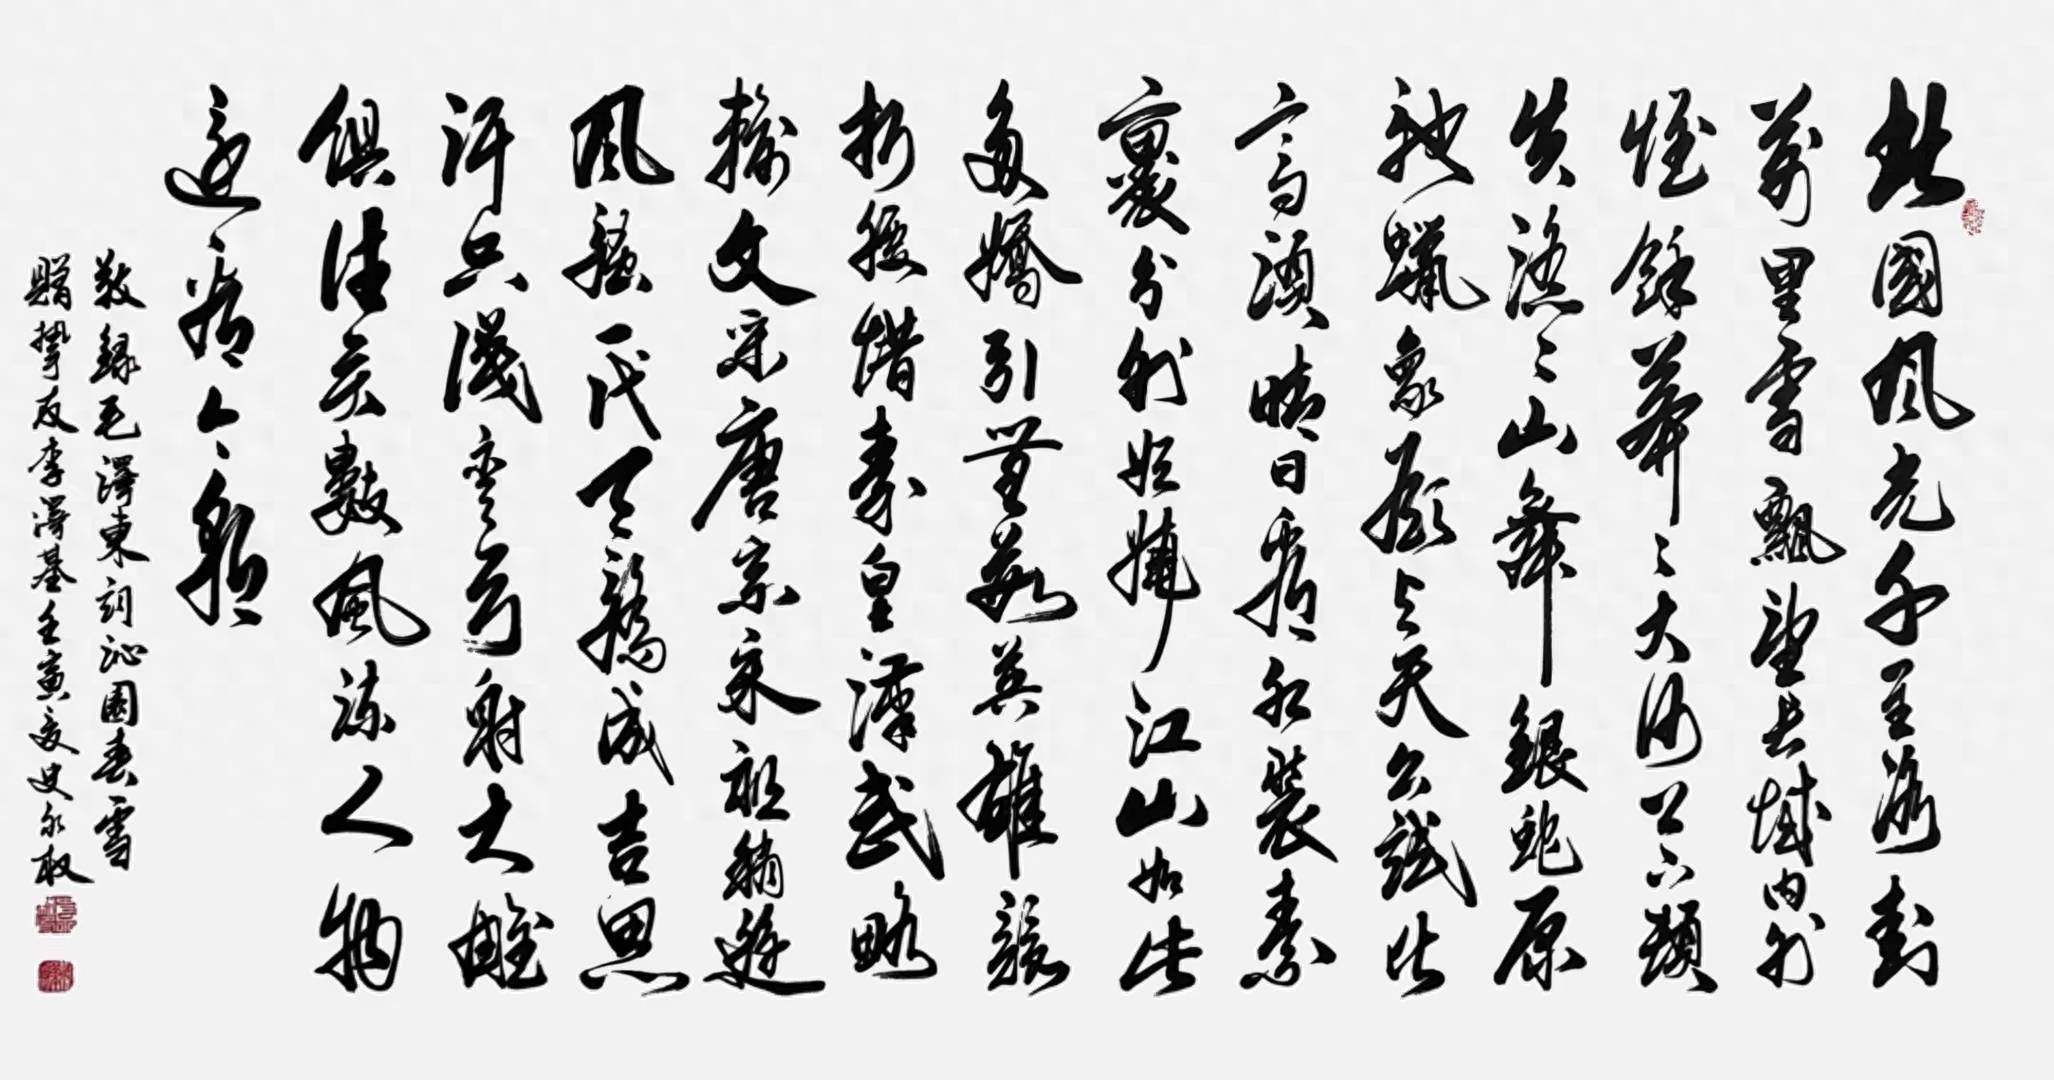 北國風光千里冰封
萬里雪飄望長城內外
惟餘莽〻大河上下頓
失滔〻山舞銀蛇原
馳蠟象欲與天公試比
高須晴日看紅裝素
裹分外妖嬈江山如此
多嬌引無數英雄競
折腰惜秦皇漢武略
輸文采唐宗宋祖稍遜
風騷一代天驕成吉思
汗只識彎弓射大雕
俱往矣數風流人物
還看今朝
敬錄毛澤東詞沁園春雪
贈摯友李澤基壬寅夏史永